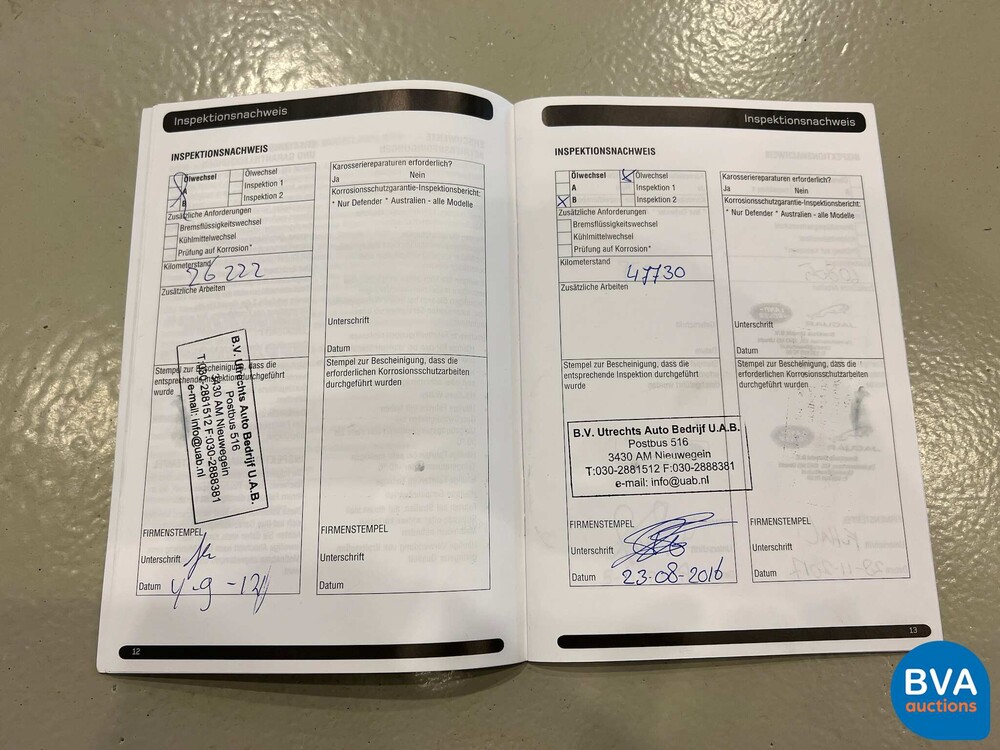 Inspektionsnachweis
INSPEKTIONSNACHWEIS
Ölwechsel
A
B
Ölwechsel
Inspektion 1
Inspektion 2
Zusätzliche Anforderungen
Bremsflüssigkeitswechsel
Kühlmittelwechsel
Prüfung auf Korrosion*
Kilometerstand
26222
Zusätzliche Arbeiten
Stempel zur Bescheinigung, dass die
entsprechende Inspektion durchgeführt
wurde
B.V. Utrechts Auto Bedrijf U.A.B.
Postbus 516
3430 AM Nieuwegein
T:030-2881512 F:030-2888381
e-mail: info@uab.nl
FIRMENSTEMPEL
Unterschrift
Datum
Karosseriereparaturen erforderlich?
Ja Nein
Korrosionsschutzgarantie-Inspektionsbericht:
* Nur Defender * Australien - alle Modelle
Unterschrift
Datum
Stempel zur Bescheinigung, dass die
erforderlichen Korrosionsschutzarbeiten
durchgeführt wurden
FIRMENSTEMPEL
Unterschrift
Datum
12
Inspektionsnachweis
INSPEKTIONSNACHWEIS
Ölwechsel
A
B
Ölwechsel
Inspektion 1
Inspektion 2
Zusätzliche Anforderungen
Bremsflüssigkeitswechsel
Kühlmittelwechsel
Prüfung auf Korrosion*
Kilometerstand
47730
Zusätzliche Arbeiten
Stempel zur Bescheinigung, dass die
entsprechende Inspektion durchgeführt
wurde
B.V. Utrechts Auto Bedrijf U.A.B.
Postbus 516
3430 AM Nieuwegein
T:030-2881512 F:030-2888381
e-mail: info@uab.nl
FIRMENSTEMPEL
Unterschrift
Datum 23-08-2016
Karosseriereparaturen erforderlich?
Ja Nein
Korrosionsschutzgarantie-Inspektionsbericht:
* Nur Defender * Australien - alle Modelle
Unterschrift
Datum
Stempel zur Bescheinigung, dass die
erforderlichen Korrosionsschutzarbeiten
durchgeführt wurden
FIRMENSTEMPEL
Unterschrift
Datum
13
BVA
auctions